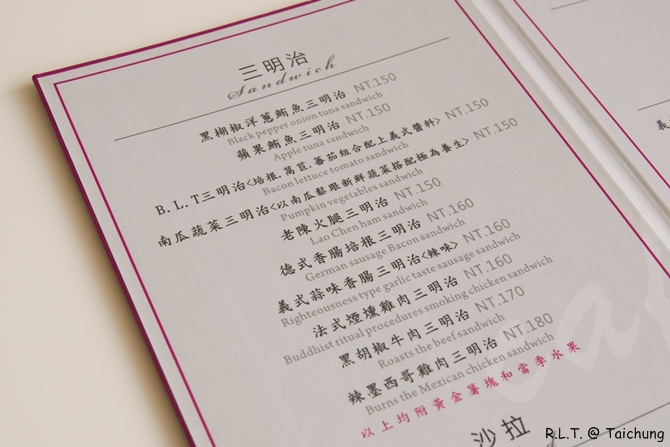 三明治
Sandwich
黑椒洋蔥鮪魚三明治 NT.150
Black pepper onion tuna sandwich
蘋果鮪魚三明治 NT.150
Apple tuna sandwich
B. L. T三明治<培根.萵苣.蕃茄組合配上義式醬料> NT.150
Bacon lettuce tomato sandwich
南瓜蔬菜三明治<以南瓜鬆跟新鮮蔬菜搭配極為養生> NT.150
Pumpkin vegetables sandwich
老陳火腿三明治 NT.150
Lao Chen ham sandwich
德式香腸培根三明治 NT.160
German sausage Bacon sandwich
義式蒜味香腸三明治<辣味> NT.160
Righteousness type garlic taste sausage sandwich
法式煙燻雞肉三明治 NT.160
Buddhist ritual procedures smoking chicken sandwich
黑胡椒牛肉三明治 NT.170
Roasts the beef sandwich
辣墨西哥雞肉三明治 NT.180
Burns the Mexican chicken sandwich
以上均附黃金薯塊和當季水果
沙拉
義
R.L.T. @ Taichung